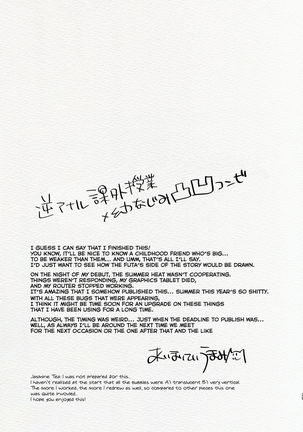 逆アナル課外授業
×幼なじみ凸凹コンビ
I GUESS I CAN SAY THAT I FINISHED THIS!
YOU KNOW, IT'LL BE NICE TO KNOW A CHILDHOOD FRIEND WHO'S BIG...
TO BE WEAKER THAN THEM... AND UMM, THAT'S ALL I'LL SAY.
I'D JUST WANT TO SEE HOW THE FUTA'S SIDE OF THE STORY WOULD BE DRAWN.
ON THE NIGHT OF MY DEBUT, THE SUMMER HEAT WASN'T COOPERATING.
THINGS WEREN'T RESPONDING, MY GRAPHICS TABLET DIED,
AND MY ROUTER STOPPED WORKING.
IT'S AMAZING THAT I SOMEHOW PUBLISHED THIS... SUMMER THIS YEAR'S SO SHITTY.
WITH ALL THESE BUGS THAT WERE APPEARING,
I THINK IT MIGHT BE TIME SOON FOR AN UPGRADE ON THESE THINGS
THAT I HAVE BEEN USING FOR A LONG TIME.
ALTHOUGH, THE TIMING WAS WEIRD... JUST WHEN THE DEADLINE TO PUBLISH WAS...
WELL, AS ALWAYS I'LL BE AROUND THE NEXT TIME WE MEET
FOR THE NEXT OCCASION OR THE ONE AFTER THAT AND THE LIKE
Jasmine Tea: I was not prepared for this.
I haven't realized at the start that all the bubbles were A) translucent B) very vertical
The more I worked, the more I redrew as well, so compared to other pieces this one
was quite involved.
I hope you enjoyed this!